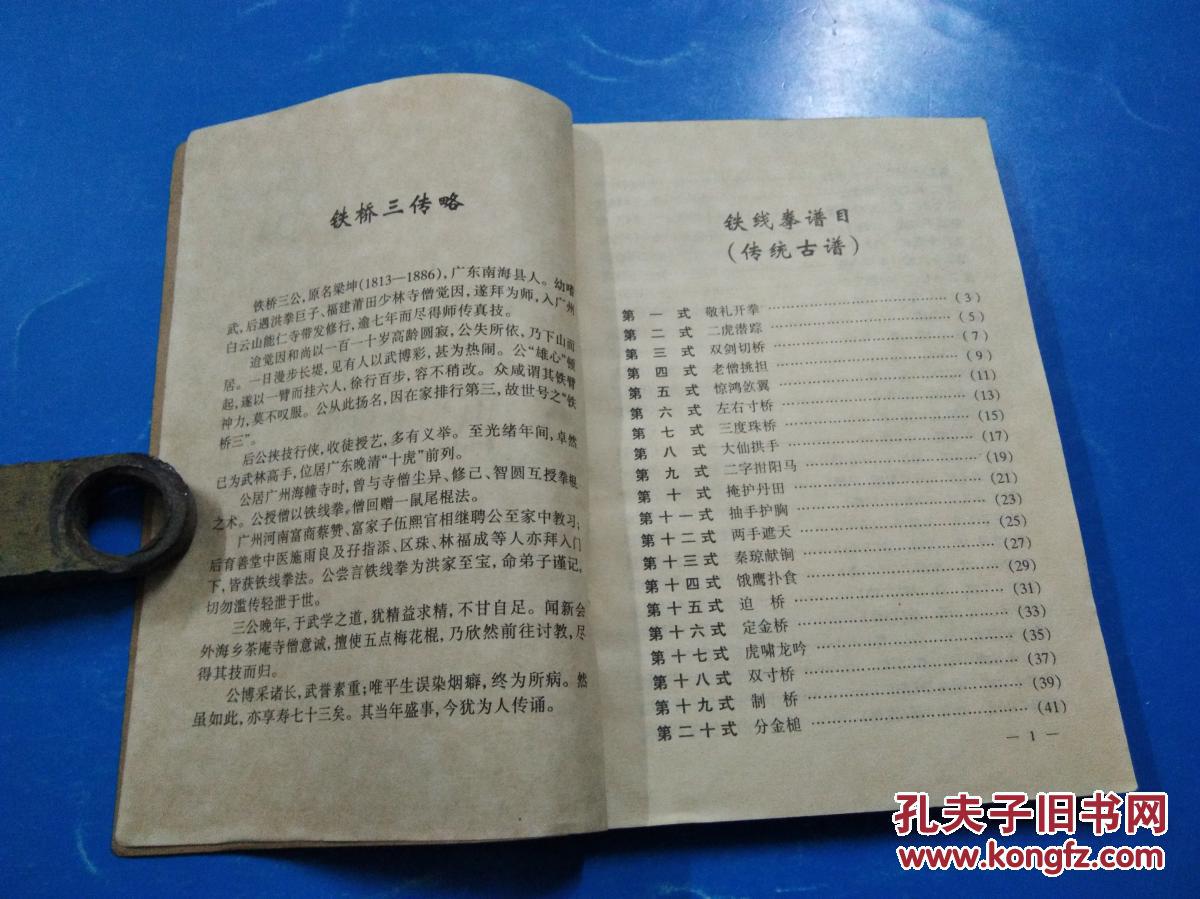 铁桥三传略
铁桥三公，原名梁坤(1813—1886)，广东南海县人。幼嗜
武，后遇洪拳巨子、福建莆田少林寺僧觉因，遂拜为师，入广州
白云山能仁寺带发修行，逾七年而尽得师传真技。
迨觉因和尚以一百一十岁高龄圆寂，公失所依，乃下山而
居。一日漫步长堤，见有人以武博彩，甚为热闹。公“雄心”顿
起，遂以一臂而挂六人，徐行百步，容不稍改。众咸谓其铁臂
神力，莫不叹服。公从此扬名，因在家排行第三，故世号之“铁
桥三”。
后公挟技行侠，收徒授艺，多有义举。至光绪年间，卓然
已为武林高手，位居广东晚清“十虎”前列。
公居广州海幢寺时，曾与寺僧尘异、修己、智圆互授拳棍
之术。公授僧以铁线拳，僧回赠一鼠尾棍法。
广州河南富商蔡赞、富家子伍熙官相继聘公至家中教习；
后育善堂中医施雨良及孖指添、区珠、林福成等人亦拜入门
下，皆获铁线拳法。公尝言铁线拳为洪家至宝，命弟子谨记，
切勿滥传轻泄于世。
三公晚年，于武学之道，犹精益求精，不甘自足。闻新会
外海乡茶庵寺僧意诚，擅使五点梅花棍，乃欣然前往讨教，尽
得其技而归。
公博采诸长，武誉素重；唯平生误染烟癖，终为所病。然
虽如此，亦享寿七十三矣。其当年盛事，今犹为人传诵。
铁线拳谱目
（传统古谱）
第一式 敬礼开拳 ……………(3)
第二式 二虎潜踪 ……………(5)
第三式 双剑切桥 ……………(7)
第四式 老僧挑担 ……………(9)
第五式 惊鸿敛翼 ……………(11)
第六式 左右寸桥 ……………(13)
第七式 三度珠桥 ……………(15)
第八式 大仙拱手 ……………(17)
第九式 二字拑阳马 ……………(19)
第十式 掩护丹田 ……………(21)
第十一式 抽手护胸 ……………(23)
第十二式 两手遮天 ……………(25)
第十三式 秦琼献锏 ……………(27)
第十四式 饿鹰扑食 ……………(29)
第十五式 迫桥 ……………(31)
第十六式 定金桥 ……………(33)
第十七式 虎啸龙吟 ……………(35)
第十八式 双寸桥 ……………(37)
第十九式 制桥 ……………(39)
第二十式 分金槌 ……………(41)
— 1 —
孔夫子旧书网
www.kongfz.com